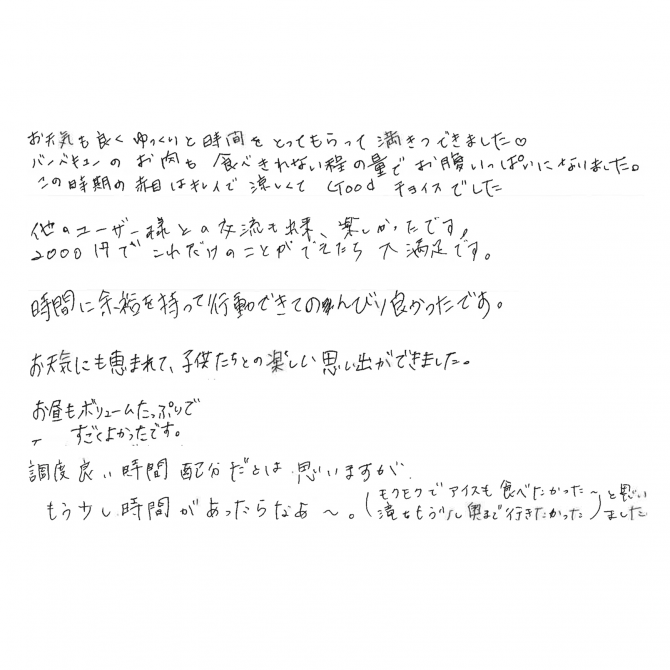 お天気も良くゆっくりと時間をとってもらって満きつできました♡
バーベキューのお肉も食べきれない程の量でお腹いっぱいになりました。
この時期の赤目はキレイで涼しくてGoodチョイスでした
他のユーザー様との交流も出来、楽しかったです。
2000円でこれだけのことができたら大満足です。
時間に余裕を持って行動できてのんびり良かったです。
お天気にも恵まれて、子供たちとの楽しい思い出ができました。
お昼もボリュームたっぷりで
すごくよかったです。
調度良い時間配分だとは思いますが
もう少し時間があったらなぁ〜。
(モクモクでアイスも食べたかった〜
滝をもう少し奥まで行きたかった)と思い
ました